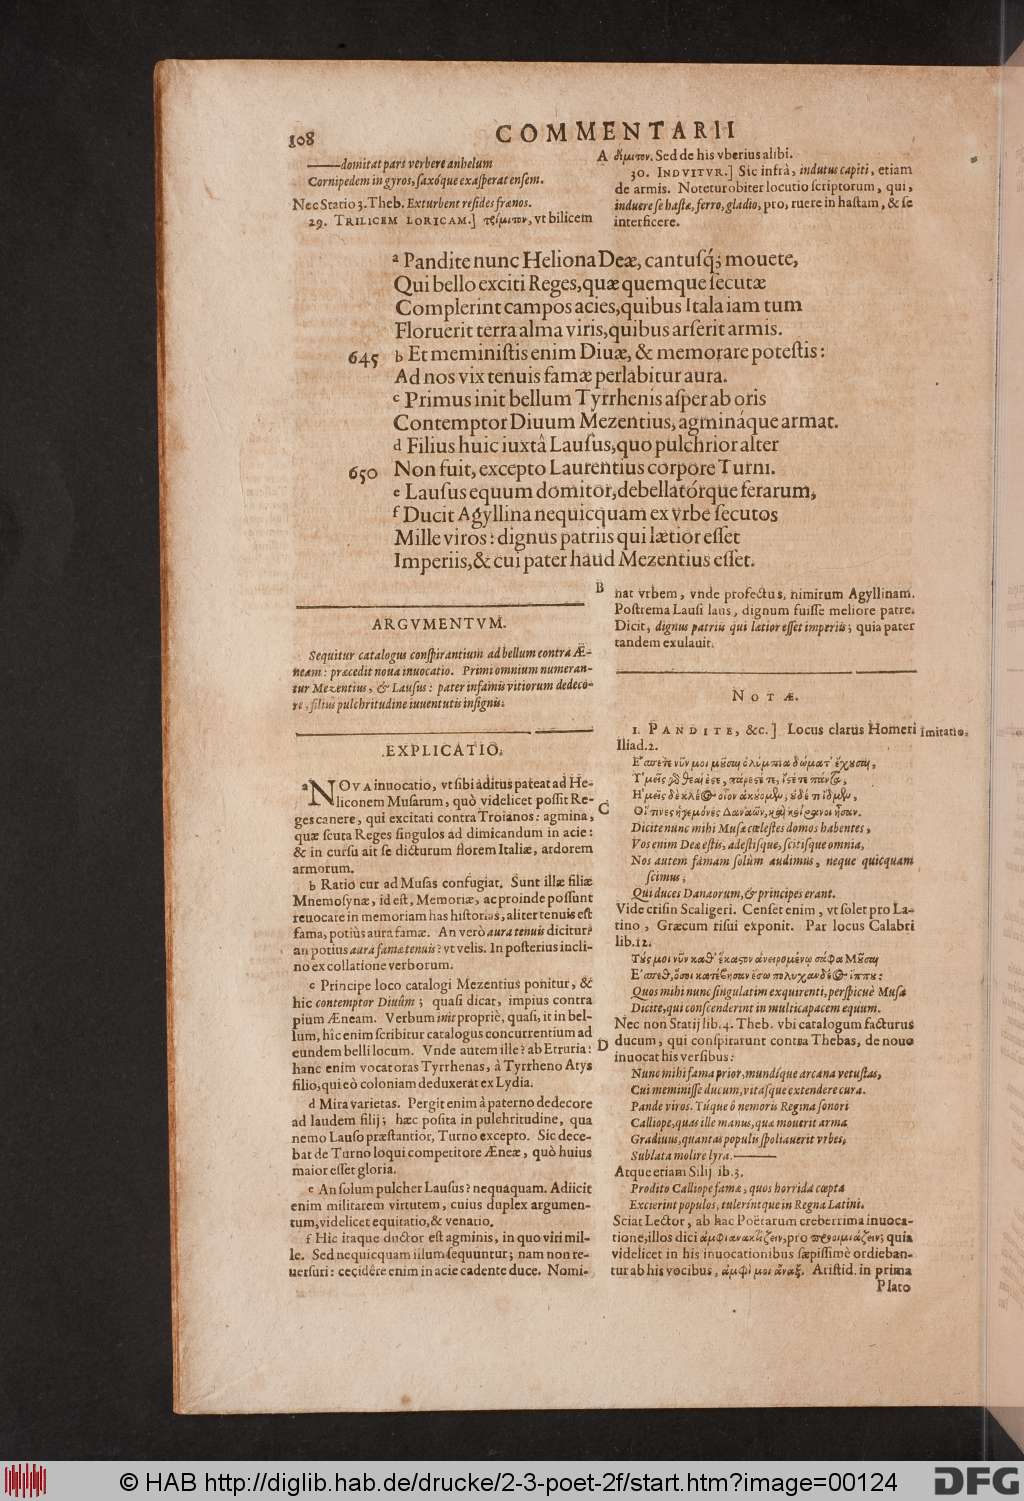 108
COMMENTARII
——domitat pars verbere anhelum
Cornipedem in gyros, saxóque exasperat ensem.
Nec Statio 3. Theb. Exturbent resides frænos.
29. TRILICEM LORICAM.] τρίμιτον, vt bilicem
A
δίμιτον. Sed de his vberius alibi.
30. INDVITVR.] Sic infrà, indutus capiti, etiam
de armis. Notetur obiter locutio scriptorum, qui,
induere se hastæ, ferro, gladio, pro, ruere in hastam, & se
interficere.
a Pandite nunc Heliona Deæ, cantusq́; mouete,
Qui bello exciti Reges, quæ quemque secutæ
Complerint campos acies, quibus Itala iam tum
Floruerit terra alma viris, quibus arserit armis.
645 b Et meministis enim Diuæ, & memorare potestis:
Ad nos vix tenuis famæ perlabitur aura.
c Primus init bellum Tyrrhenis asper ab oris
Contemptor Diuum Mezentius, agmináque armat.
d Filius huic iuxtâ Lausus, quo pulchrior alter
650 Non fuit, excepto Laurentius corpore Turni.
e Lausus equum domitor, debellatórque ferarum,
f Ducit Agyllina nequicquam ex vrbe secutos
Mille viros: dignus patriis qui lætior esset
Imperiis, & cui pater haud Mezentius esset.
ARGVMENTVM.
Sequitur catalogus conspirantium ad bellum contra Æ-
neam: præcedit noua inuocatio. Primi omnium numeran-
tur Mezentius, & Lausus: pater infamis vitiorum dedeco-
re, filius pulchritudine iuuentutis insignis.
EXPLICATIO.
a NOVA inuocatio, vt sibi aditus pateat ad He-
liconem Musarum, quò videlicet possit Re-
ges canere, qui excitati contra Troianos: agmina,
quæ scuta Reges singulos ad dimicandum in acie:
& in cursu ait se dicturum florem Italiæ, ardorem
armorum.
b Ratio cur ad Musas confugiat. Sunt illæ filiæ
Mnemosynæ, id est, Memoriæ, ac proinde possunt
reuocare in memoriam has historias, aliter tenuis est
fama, potiùs aura famæ. An verò aura tenuis dicitur?
an potius aura famæ tenuis? vt velis. In posterius incli-
no ex collatione verborum.
c Principe loco catalogi Mezentius ponitur, &
hic contemptor Diuûm; quasi dicat, impius contra
pium Æneam. Verbum init propriè, quasi, it in bel-
lum, hîc enim scribitur catalogus concurrentium ad
eundem belli locum. Vnde autem ille? ab Etruria:
hanc enim vocat oras Tyrrhenas, à Tyrrheno Atys
filio, qui eò coloniam deduxerat ex Lydia.
d Mira varietas. Pergit enim à paterno dedecore
ad laudem filij; hæc posita in pulchritudine, qua
nemo Lauso præstantior, Turno excepto. Sic dece-
bat de Turno loqui competitore Æneæ, quò huius
maior esset gloria.
e An solum pulcher Lausus? nequaquam. Adiicit
enim militarem virtutem, cuius duplex argumen-
tum, videlicet equitatio, & venatio.
f Hic itaque ductor est agminis, in quo viri mil-
le. Sed nequicquam illum sequuntur; nam non re-
uersuri: cecidére enim in acie cadente duce. Nomi-
B
nat vrbem, vnde profectus, nimirum Agyllinam.
Postrema Lausi laus, dignum fuisse meliore patre.
Dicit, dignus patriis qui lætior esset imperiis; quia pater
tandem exulauit.
NOTÆ.
1. PANDITE, &c.] Locus clarus Homeri
Imitatio.
Iliad. 2.
Ἔσπετε νῦν μοι μοῦσαι ὀλύμπια δώματ' ἔχουσαι,
Ὑμεῖς γὰρ θεαί ἐστε, πάρεστέ τε, ἴστέ τε πάντα,
C
Ἡμεῖς δὲ κλέος οἶον ἀκούομεν, οὐδέ τι ἴδμεν,
Οἵτινες ἡγεμόνες Δαναῶν, καὶ κοίρανοι ἦσαν.
Dicite nunc mihi Musæ cælestes domos habentes,
Vos enim Deæ estis, adestisque, scitisque omnia,
Nos autem famam solùm audimus, neque quicquam
scimus,
Qui duces Danaorum, & principes erant.
Vide crisin Scaligeri. Censet enim, vt solet pro La-
tino, Græcum risui exponit. Par locus Calabri
lib. 12.
Τούς μοι νῦν καθ' ἕκαστον ἀνειρομένῳ σάφα Μοῦσαι
Ἔσπεθ, ὅσοι κατέβησαν ἔσω πολυχανδέος ἵππου:
Quos mihi nunc singulatim exquirenti, perspicuè Musæ
Dicite, qui conscenderint in multicapacem equum.
Nec non Statij lib. 4. Theb. vbi catalogum facturus
D
ducum, qui conspirarunt contra Thebas, de nouo
inuocat his versibus:
Nunc mihi fama prior, mundíque arcana vetustas,
Cui meminisse ducum, vitásque extendere cura.
Pande viros. Túque ô nemoris Regina sonori
Calliope, quas ille manus, quæ mouerit arma
Gradiuus, quantas populis spoliauerit vrbes,
Sublata molire lyra.——
Atque etiam Silij lib. 3.
Prodito Calliope famæ, quos horrida cœpta
Excierint populos, tulerintque in Regna Latini.
Sciat Lector, ab hac Poëtarum creberrima inuoca-
tione, illos dici ἀμφιανακτίζειν, pro προοιμιάζειν; quia
videlicet in his inuocationibus sæpissimè ordieban-
tur ab his vocibus, ἀμφί μοι ἄναξ. Aristid. in prima
Plato
© HAB http://diglib.hab.de/drucke/2-3-poet-2f/start.htm?image=00124
DFG